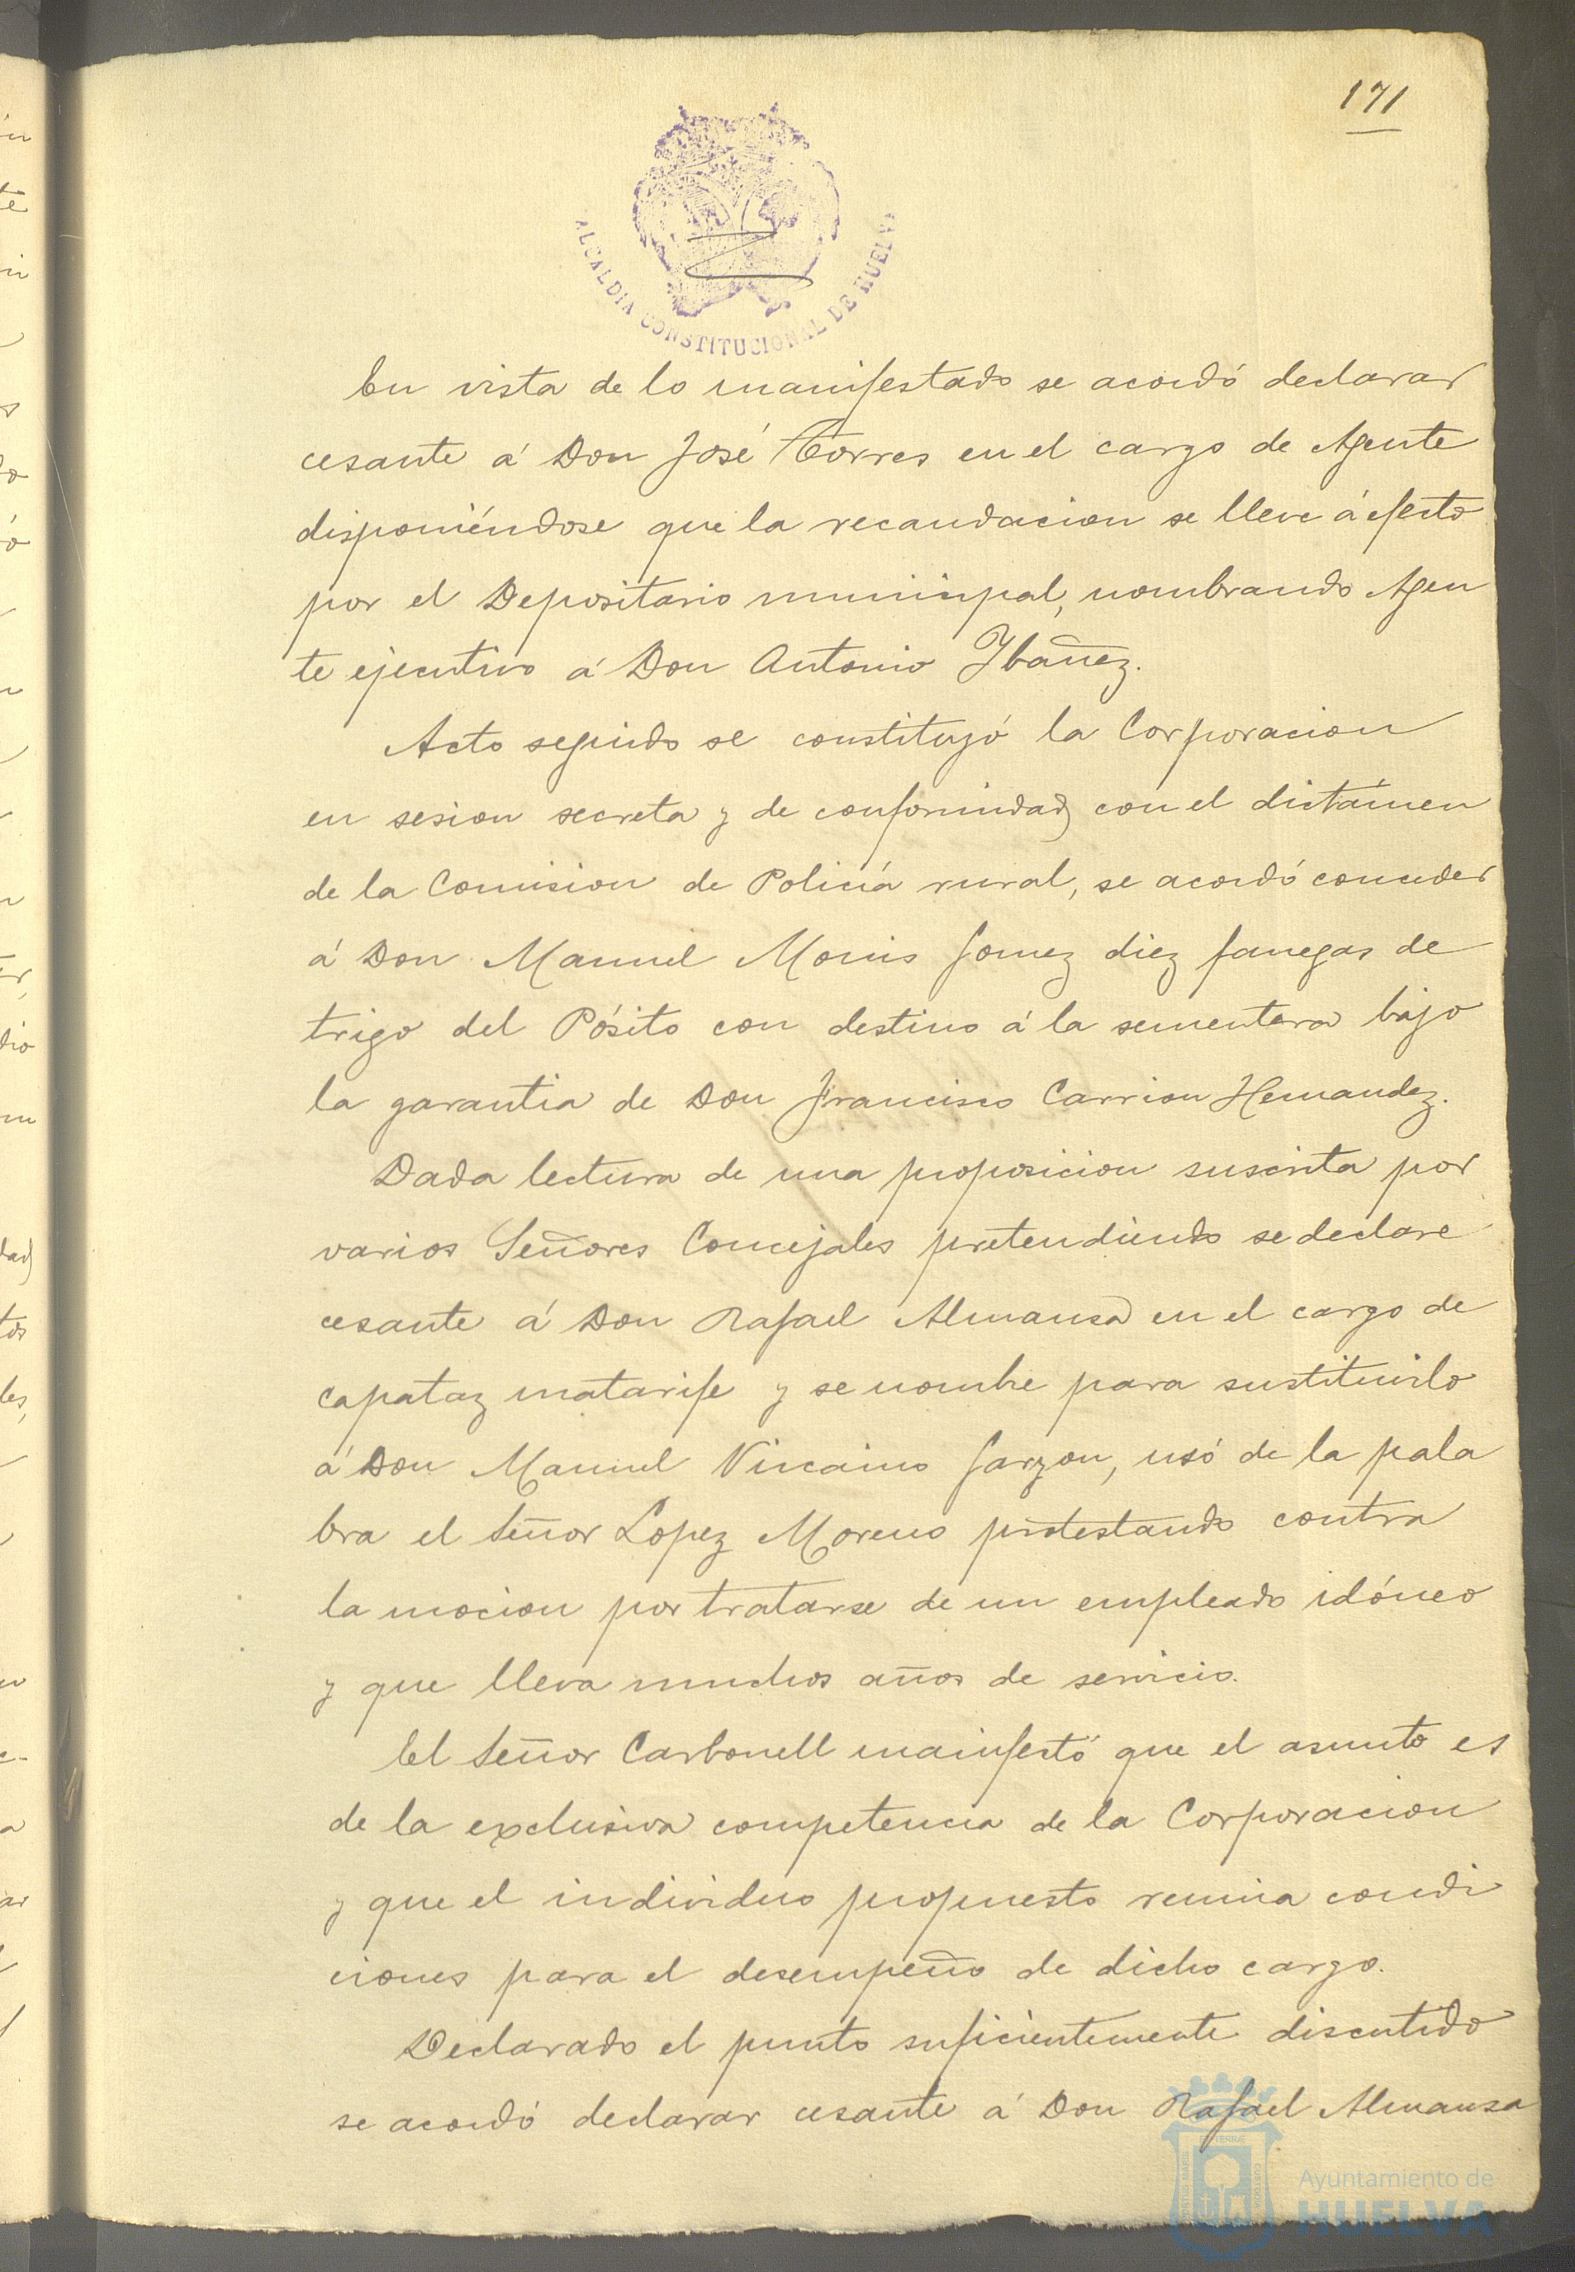 171
ALCALDIA CONSTITUCIONAL DE HUELVA
En vista de lo manifestado se acordó declarar
cesante á Don José Torres en el cargo de Agente
disponiéndose que la recaudacion se lleve á efecto
por el Depositario municipal, nombrando Agen
te ejecutivo á Don Antonio Ybañez.
Acto seguido se constituyó la Corporacion
en sesion secreta y de conformidad con el dictámen
de la Comision de Policía rural, se acordó conceder
á Don Manuel Moris Gomez diez fanegas de
trigo del Pósito con destino á la sementera bajo
la garantia de Don Francisco Carrion Hernandez.
Dada lectura de una proposicion suscrita por
varios Señores Concejales pretendiendo se declare
cesante á Don Rafael Almansa en el cargo de
capataz matarife y se nombre para sustituirlo
á Don Manuel Vizcaino Garzon, usó de la pala
bra el Señor Lopez Moreno protestando contra
la mocion por tratarse de un empleado idóneo
y que lleva muchos años de servicio.
El Señor Carbonell manifestó que el asunto es
de la exclusiva competencia de la Corporacion
y que el individuo propuesto reunia condi
ciones para el desempeño de dicho cargo.
Declarado el punto suficientemente discutido
se acordó declarar cesante á Don Rafael Almansa
Ayuntamiento de
HUELVA